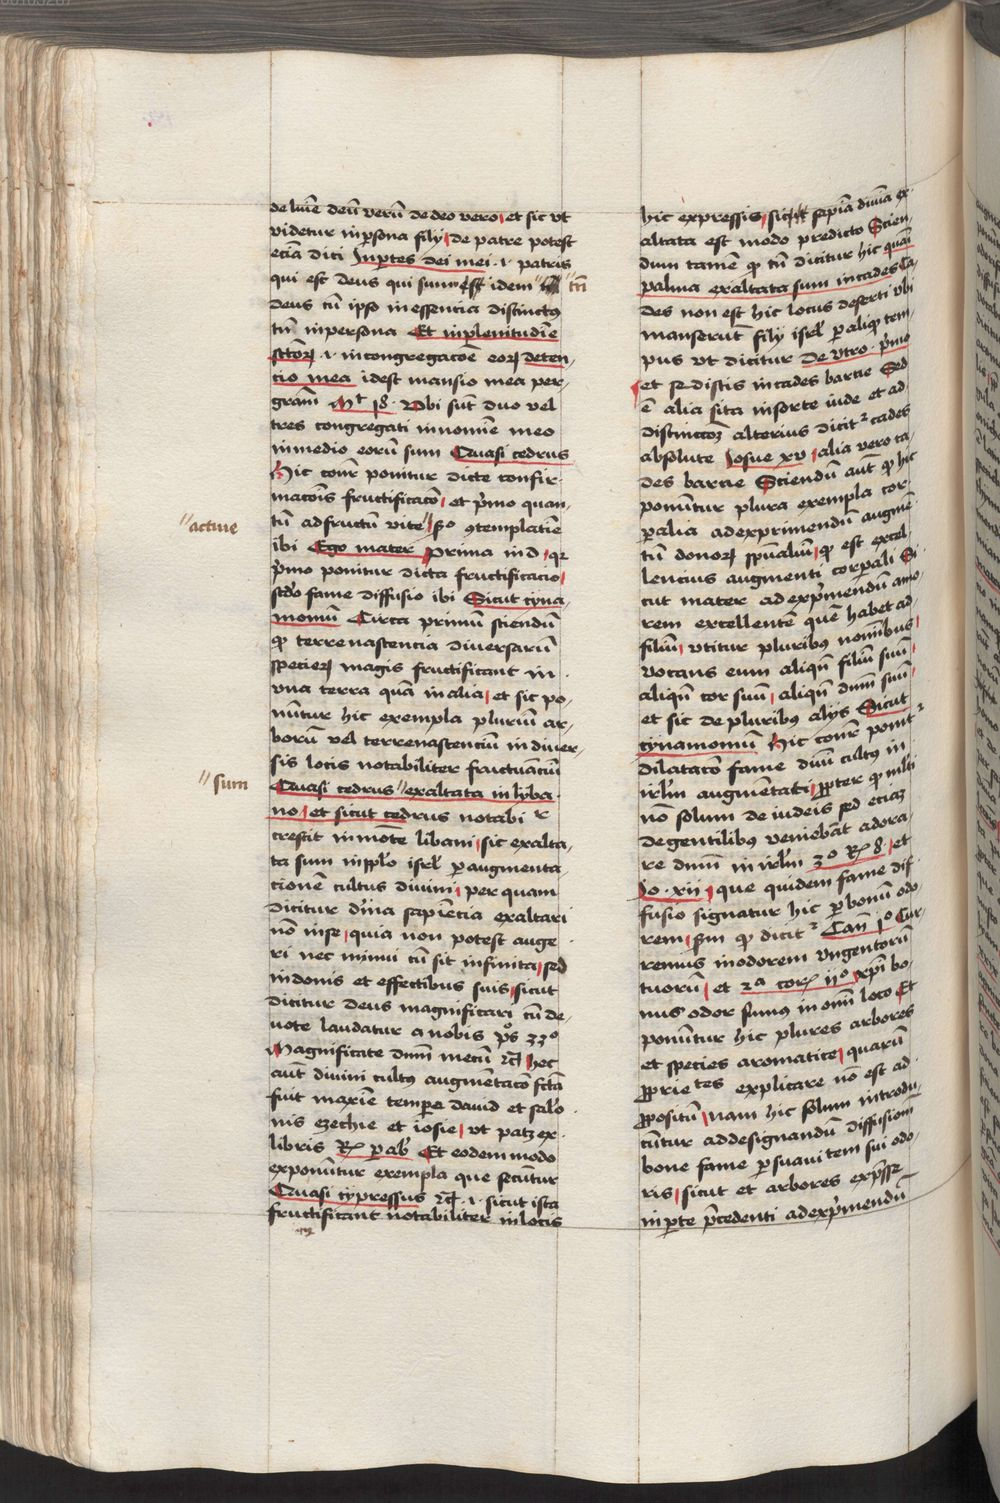 de lumē deū verū de deo vero et sic vt
videtur in psona filij de patre potest
eciā dici In ptes dei mei .i. patris
qui est deus qui sum est idem tm̄
deus cū ipso in essencia distinctus
tn̄ in persona Et in plenitudīe
sctōꝝ .i. in congregacoē eoꝝ deten
cio mea idest mansio mea per
graām Mt 18. vbi sūt duo vel
tres congregati in noīe meo
in medio eorū sum Quasi cedrus
Hic conr̄ ponitur dicte confir
macōis fructificacō et pͥmo quan
tū ad fructū vite 2o ɔtemplatiē
actiue
ibi Ego mater prima in d. qꝛ
pͥmo ponitur dicta fructificacio
scdo fame diffusio ibi Sicut cyna
momū Circa primū sciendū
ꝙ terrenascencia diuersarū
specieꝝ magis fructificant in
vna terra quā in alia et sic po
nūtur hic exempla pluriū ar
borū vel terrenascenciū in diuer
sis locis notabiliter fructuanciū
sum
Quasi cedrus exaltata in lyba
no et sicut cedrus notabi r̄
crescit in mōte libani sic exalta
ta sum in pplo isrl̄ ꝑ augmenta
cionē cultus diuini per quam
dicitur dīna sapiēcia exaltari
nō in se quia non potest auge
ri nec minui cū sit infinita sed
in donis et effectibus suis sicut
dicitur deus magnificari cū de
uote laudatur a nobis ps 33o
Magnificate dnm̄ mecū rc̄ hec
aūt diuini cultꝰ augmētacō fcā
fuit maxīe tempore dauid et salo
nis ezechie et iosie vt patꝫ ex
libris Rꝝ ꝑab Et eodem modo
exponūtur exempla que secūtur
Quasi cypressus rc̄ .i. sicut ista
fructificant notabiliter in locis
hic expressis sic sapīa diuīa ex
altata est modo predicto Scien
dum tamē ꝙ cū dicitur hic quasi
palma exaltata sum in cades Ca
des non est hic locus deserti vbi
manserūt filij isrl̄ ꝑ aliqꝫ tem
pus vt dicitur De vtro pͥmo
et distis in cades barne Sed
ē alia sita in sorte iude et ad
distinccōꝫ alterius dicitꝛ cades
absolute Iosue xv alia vero ca
des barne Sciendū aūt ꝙ hic
ponūtur plura exempla cor
ꝑalia ad exprimendū augmē
tū donoꝝ spūaliū ꝙ est excel
lencius augmenti corꝑali Si
cut mater ad expͥmendū amo
rem excellentē quē habet ad
filiū vtitur pluribus noībus
vocans eum aliqn̄ filiū suū
aliqn̄ cor suū aliqn̄ dnm̄ suū
et sic de pluribꝰ alijs Sicut
cynamomū Hic conr̄ ponitꝛ
dilatacō fame diuī cultꝰ in
irl̄m augmētati ꝓpter ꝙ mlti
nō solum de iudeis sed eciaꝫ
de gentilibus veniebāt adora
re dnm̄ in irl̄m 3o Rꝝ 8. et
Io. xii que quidem fame dif
fusio signatur hic ꝑ bonū odo
rem sm̄ ꝙ dicitꝛ Can̄ 1o Cur
remus in odorem vngentorū
tuorū et 2a corꝝ iio xpī bo
nus odor sumus in omī loco Et
ponūtur hic plures arbores
et species aromatice quarū
ꝓprietes explicare nō est ad
ꝓpositū nam hic solum introdu
cūtur ad designandū diffusionē
bone fame ꝑ suauitem sui odo
ris sicut et arbores expͥsse
in ꝑte pͥcedenti ad expͥmendū